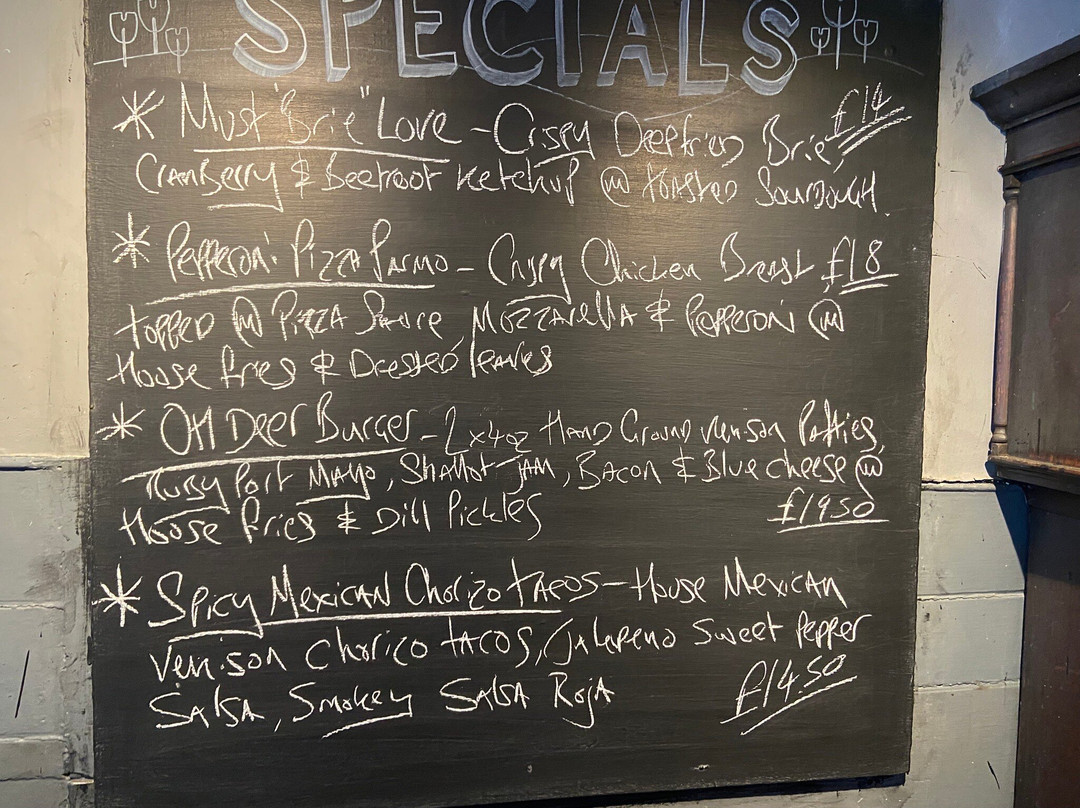 SPECIALS
* Must "Brie" Love - Crispy Deepfried Brie, £14
Cranberry & Beetroot Ketchup @ toasted Sourdough.
* Pepperoni Pizza Parmo - Crispy Chicken Breast £18
topped @ Pizza Sauce Mozzarella & Pepperoni @
House fries & Dressed leaves
* OH Deer Burger - 2x4oz Hand Ground venison Patties,
Ruby Port Mayo, Shallot Jam, Bacon & Blue cheese @
House fries & Dill Pickles £19.50
* Spicy Mexican Chorizo tacos - House Mexican
Venison Chorico tacos, Jalapeno Sweet Pepper
Salsa, Smokey Salsa Roja £14.50